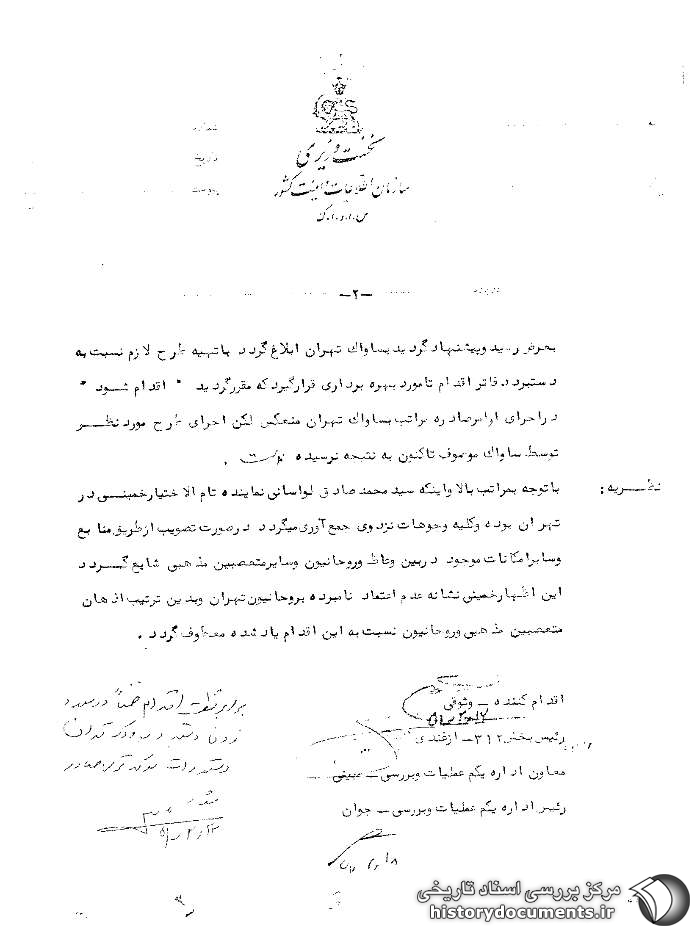 شماره
تاریخ
پیوست
نخست وزیری
سازمان اطلاعات و امنیت کشور
س.ا.و.ا.ک
-۲-
بعرض رسید وپیشنهاد گردید بساواك تهران ابلاغ گردد باتهیه طرح لازم نسبت به
دستبرد دفاتر اقدام تامورد بهره برداری قرارگیرد که مقررگردید " اقدام شود "
دراجرای اوامرصادره مراتب بساواك تهران منعکس لکن اجرای طرح مورد نظر
توسط ساواك موصوف تاکنون به نتیجه نرسیده است .
نظریه :
باتوجه بمراتب بالا واینکه سید محمد صادق لواسانی نماینده تام الاختیارخمینی در
تهران بوده وکلیه وجوهات نزدوی جمع آوری میگردد درصورت تصویب ازطریق منابع
وسایرامکانات موجود دربین وعاظ وروحانیون وسایرمتعصبین مذهبی شایع گردد
این اظهارخمینی نشانه عدم اعتماد نامبرده بروحانیون تهران وبدین ترتیب اذهان
متعصبین مذهبی وروحانیون نسبت به این اقدام یاد شده معطوف گردد .
اقدام کننده - وثوقی
رئیس بخش ۳۱۲ - ازغندی
معاون اداره یکم عملیات وبررسی -
رئیس اداره یکم عملیات وبررسی - جوان
مرکز بررسی اسناد تاریخی
historydocuments.ir